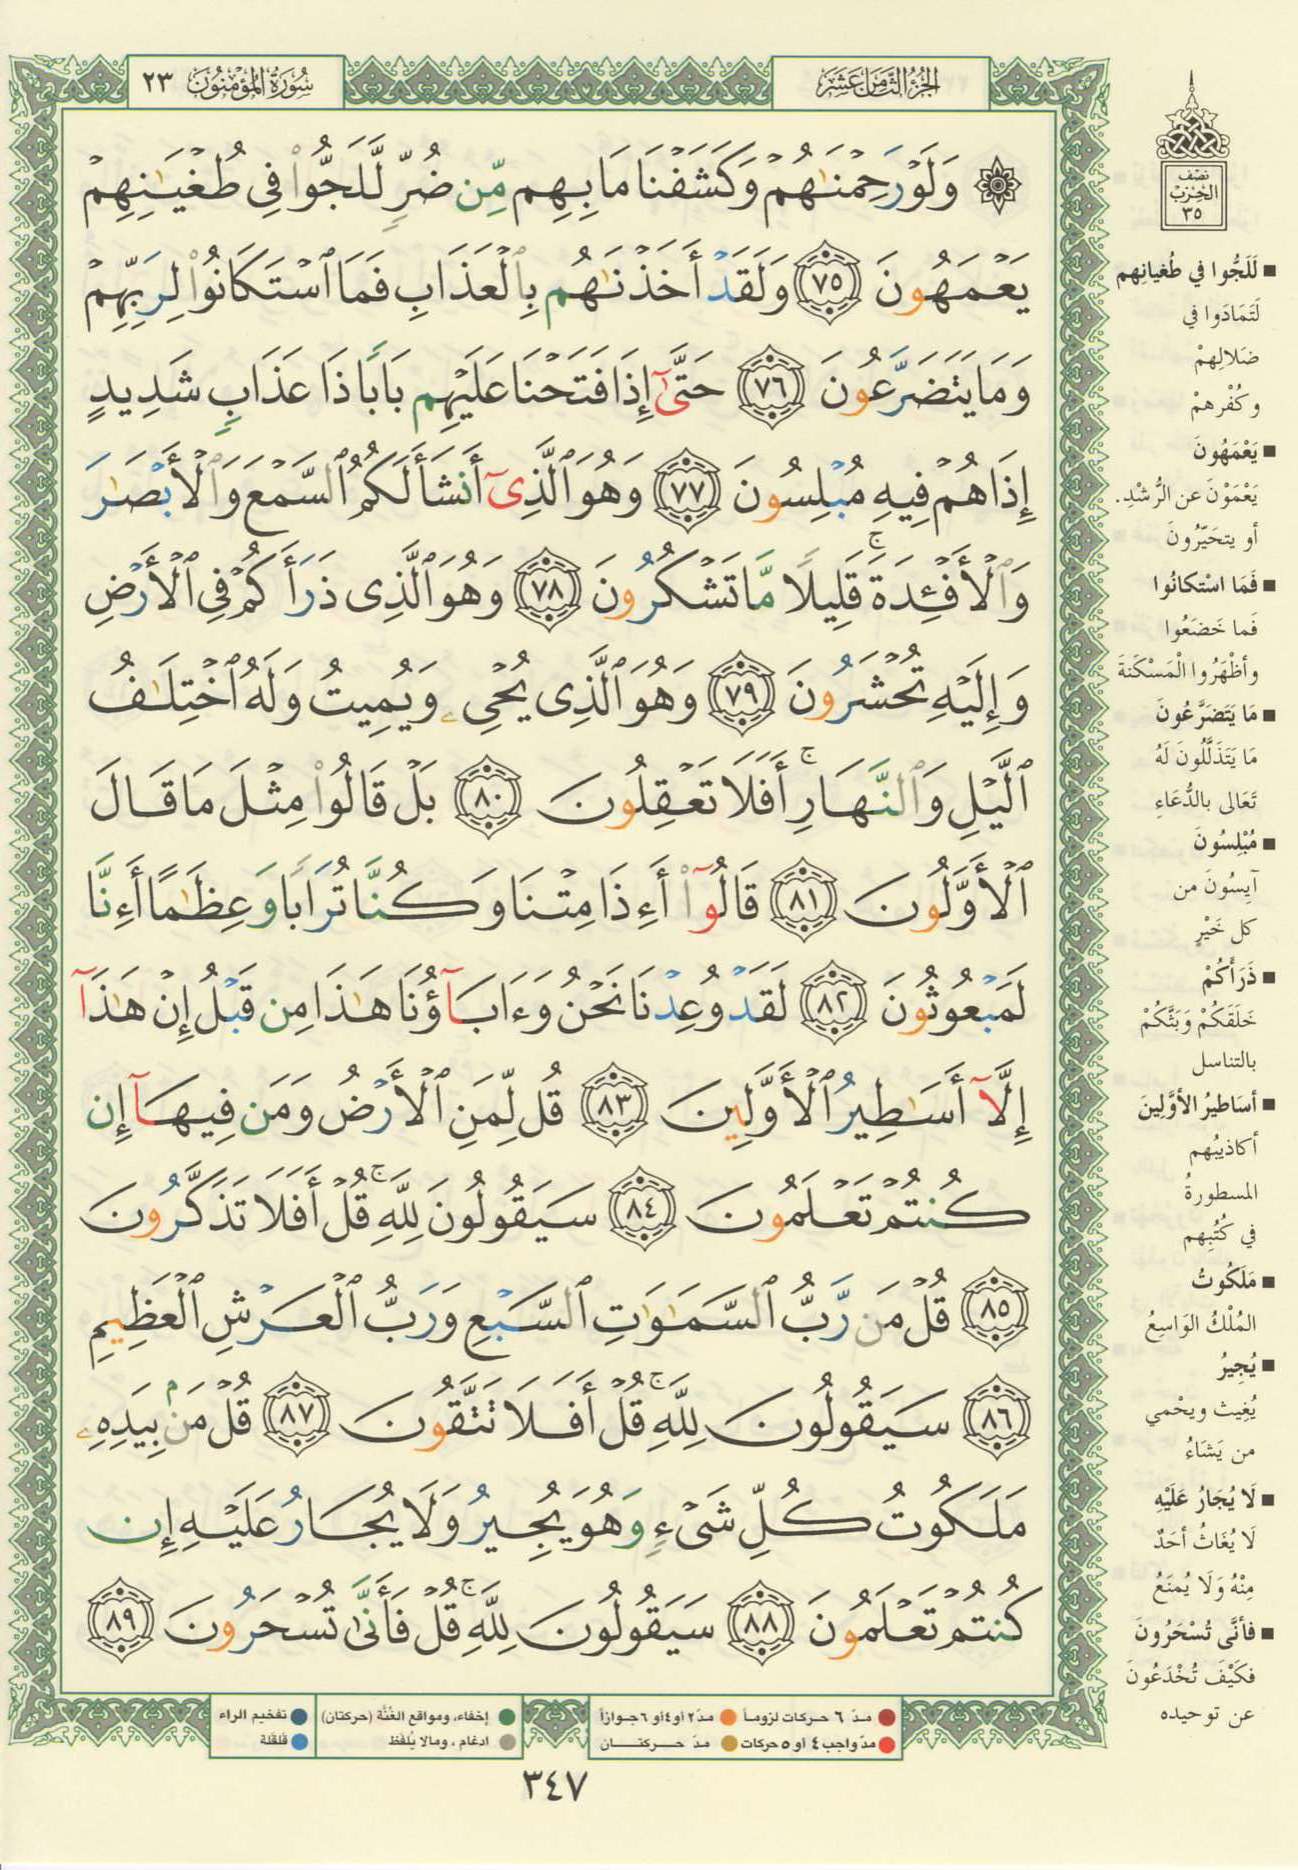 سُورَةُ المُؤْمِنُونَ ٢٣
الجُزْءُ الثَّامِنَ عَشَرَ
۞ وَلَوْ رَحِمْنَٰهُمْ وَكَشَفْنَا مَا بِهِم مِّن ضُرٍّ لَّلَجُّوا۟ فِى طُغْيَٰنِهِمْ
يَعْمَهُونَ ٧٥ وَلَقَدْ أَخَذْنَٰهُم بِٱلْعَذَابِ فَمَا ٱسْتَكَانُوا۟ لِرَبِّهِمْ
وَمَا يَتَضَرَّعُونَ ٧٦ حَتَّىٰٓ إِذَا فَتَحْنَا عَلَيْهِم بَابًا ذَا عَذَابٍ شَدِيدٍ
إِذَا هُمْ فِيهِ مُبْلِسُونَ ٧٧ وَهُوَ ٱلَّذِىٓ أَنشَأَ لَكُمُ ٱلسَّمْعَ وَٱلْأَبْصَٰرَ
وَٱلْأَفْـِٔدَةَ ۚ قَلِيلًا مَّا تَشْكُرُونَ ٧٨ وَهُوَ ٱلَّذِى ذَرَأَكُمْ فِى ٱلْأَرْضِ
وَإِلَيْهِ تُحْشَرُونَ ٧٩ وَهُوَ ٱلَّذِى يُحْىِۦ وَيُمِيتُ وَلَهُ ٱخْتِلَٰفُ
ٱلَّيْلِ وَٱلنَّهَارِ ۚ أَفَلَا تَعْقِلُونَ ٨٠ بَلْ قَالُوا۟ مِثْلَ مَا قَالَ
ٱلْأَوَّلُونَ ٨١ قَالُوٓا۟ أَءِذَا مِتْنَا وَكُنَّا تُرَابًا وَعِظَٰمًا أَءِنَّا
لَمَبْعُوثُونَ ٨٢ لَقَدْ وُعِدْنَا نَحْنُ وَءَابَآؤُنَا هَٰذَا مِن قَبْلُ إِنْ هَٰذَآ
إِلَّآ أَسَٰطِيرُ ٱلْأَوَّلِينَ ٨٣ قُل لِّمَنِ ٱلْأَرْضُ وَمَن فِيهَآ إِن
كُنتُمْ تَعْلَمُونَ ٨٤ سَيَقُولُونَ لِلَّهِ ۚ قُلْ أَفَلَا تَذَكَّرُونَ
٨٥ قُلْ مَن رَّبُّ ٱلسَّمَٰوَٰتِ ٱلسَّبْعِ وَرَبُّ ٱلْعَرْشِ ٱلْعَظِيمِ
٨٦ سَيَقُولُونَ لِلَّهِ ۚ قُلْ أَفَلَا تَتَّقُونَ ٨٧ قُلْ مَنۢ بِيَدِهِۦ
مَلَكُوتُ كُلِّ شَىْءٍ وَهُوَ يُجِيرُ وَلَا يُجَارُ عَلَيْهِ إِن
كُنتُمْ تَعْلَمُونَ ٨٨ سَيَقُولُونَ لِلَّهِ ۚ قُلْ فَأَنَّىٰ تُسْحَرُونَ ٨٩
نِصْف
الحِزْبُ
٣٥
■ لَلَجُّوا في طُغيانِهم
لَتَمَادَوا في
ضَلالِهِمْ
وكُفْرِهمْ
■ يَعْمَهُونَ
يَعْمَوْنَ عن الرُّشْدِ.
أو يتحَيّرُونَ
■ فَمَا اسْتكانُوا
فَما خَضَعُوا
وأظْهَرُوا الْمَسْكَنةَ
■ مَا يَتَضَرَّعُونَ
مَا يَتَذَلَّلُونَ لَهُ
تَعَالى بالدُّعَاءِ
■ مُبْلِسُونَ
آيِسُونَ من
كل خَيْرٍ
■ ذَرَأكُمْ
خَلَقَكُمْ وَبَثَّكُمْ
بالتناسل
■ أسَاطيرُ الأوَّلِينَ
أكاذيبُهم
المسطورةُ
في كُتُبِهم
■ مَلَكُوتُ
المُلْكُ الوَاسِعُ
■ يُجِيرُ
يُغِيث ويحْمي
من يَشَاءُ
■ لَا يُجَارُ عَلَيْهِ
لَا يُغَاثُ أحَدٌ
مِنْهُ وَلَا يُمنَعُ
■ فأنَّى تُسْحَرُونَ
فكَيْفَ تُخْدَعُونَ
عن توحيده
مدّ ٦ حركات لزوماً
مدّ ٢ أو ٤ أو ٦ جوازاً
إخفاء، ومواقع الغُنَّة (حركتان)
تفخيم الراء
مدّ واجب ٤ أو ٥ حركات
مدّ حركتان
ادغام ، ومالا يُلفَظ
قلقلة
٣٤٧